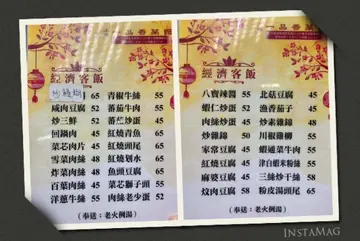 一品香菜館
經濟客飯
炒鱔糊 65 青椒牛絲 55
咸肉豆腐 52 蕃茄牛肉 55
炒三鮮 52 蕃茄炒蛋 45
回鍋肉 45 紅燒青魚 50
菜芯肉片 45 紅燒划水 50
雪菜肉絲 48 魚頭豆腐 60
炸菜肉絲 48
百葉肉絲 45 菜芯獅子頭 55
洋蔥牛絲 55 肉絲老少蛋 52
(奉送：老火例湯)
經濟客飯
八寶辣醬 55 北菇豆腐 45
蝦仁炒蛋 50 漁香茄子 45
肉絲炒蛋 50 炒素雜錦 48
炒雜錦 50 川椒雞柳 55
家常豆腐 45 蝦仁豆腐 55
紅燒豆腐 45 津白蝦米粉絲 55
麻婆豆腐 45 三絲炒干絲 58
炆肉豆腐 58 粉皮湯頭尾 65
(奉送：老火例湯)
INSTAMAG